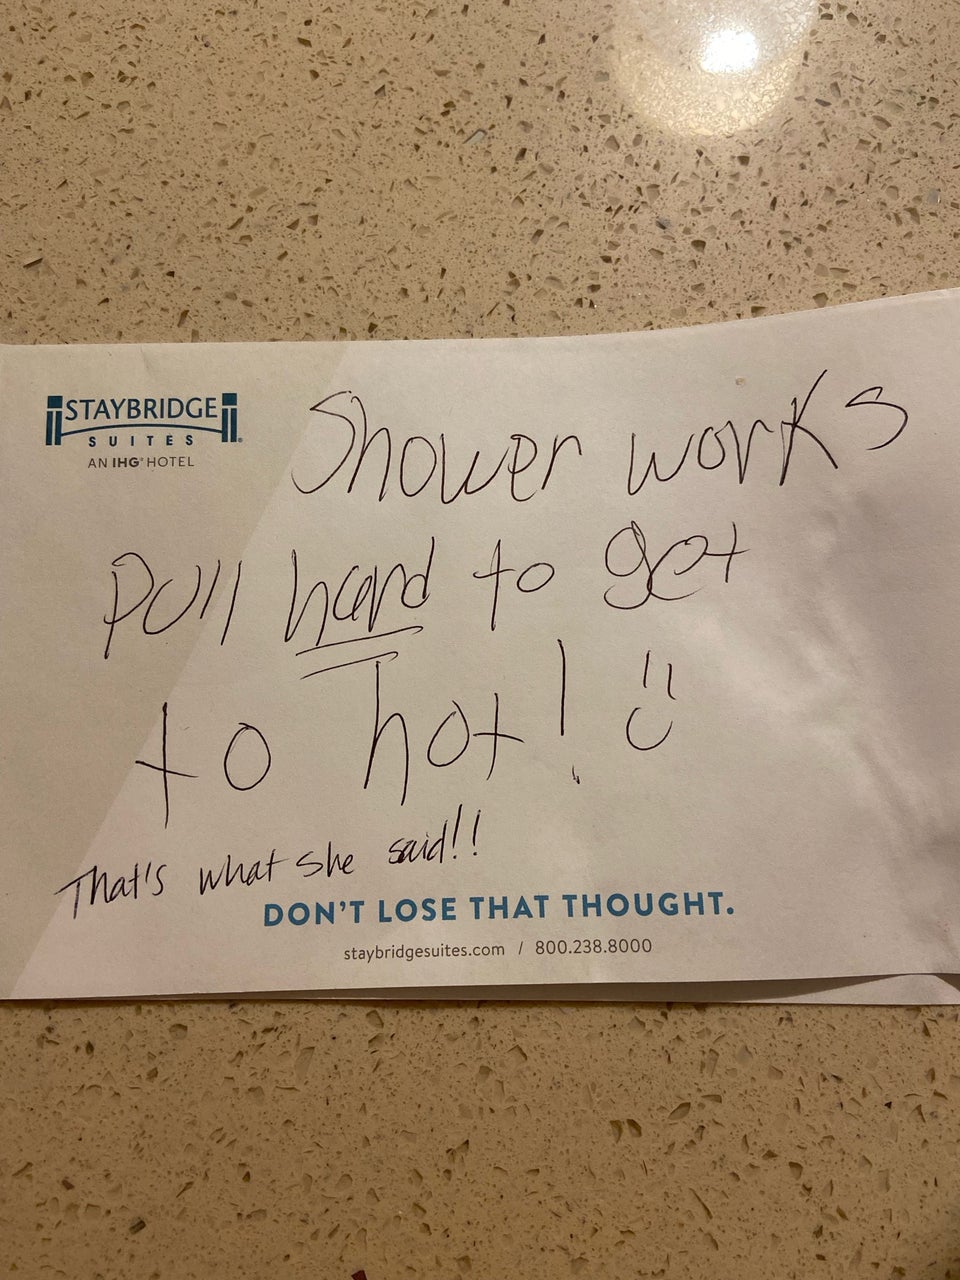 STAYBRIDGE
SUITES
AN IHG® HOTEL
Shower works
Pull hard to get
to hot! :)
That's what she said!!
DON'T LOSE THAT THOUGHT.
staybridgesuites.com / 800.238.8000